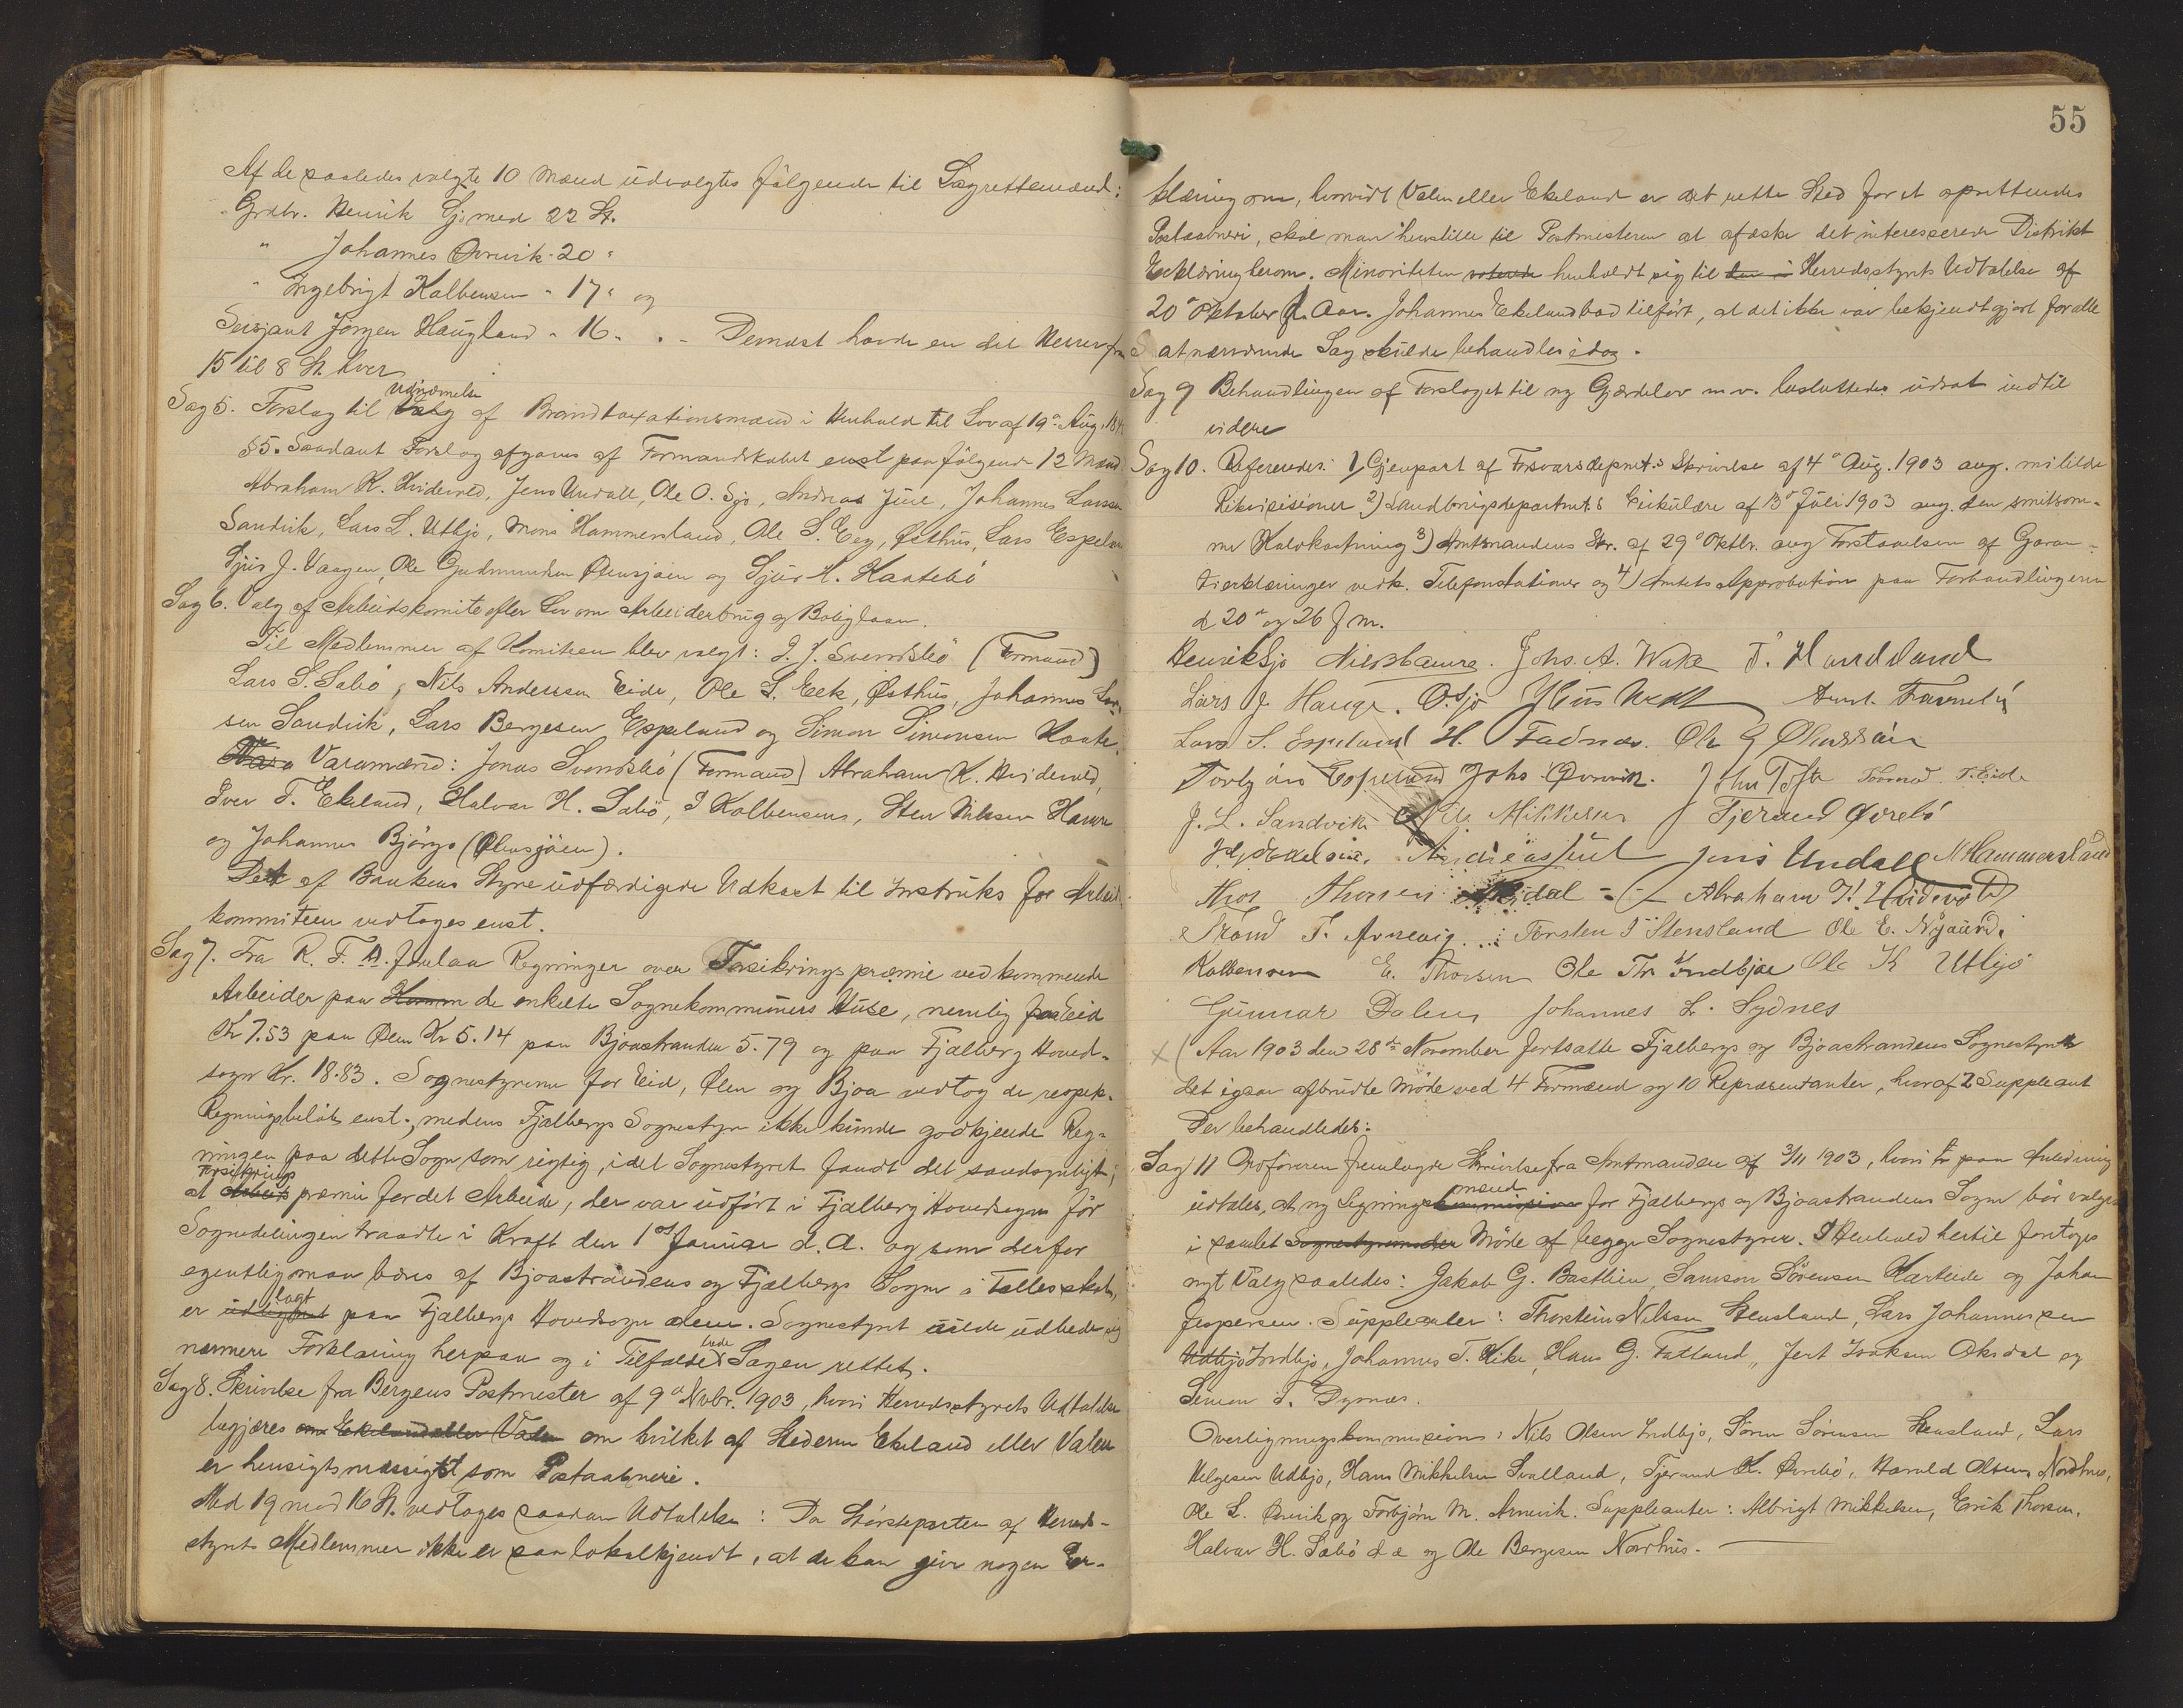 Af de saaledes valgte 10 Mænd udvalgtes følgende til Lagrettemænd:
Grdbr. Henrik Sjo med 22 St.
" Johannes Ørnvik - 20 "
" Ingebrigt Kalbensen " 17 " og
Sersjant Jørgen Haugland " 16 " . - Dernæst havde en del Herrer fra
15 til 8 St. hver
Sag 5. Forslag til Valg Udnævnelse af Brandtaxationsmænd i Henhold til Lov af 19de Aug. 18
§5. Saadant Forslag afgaves af Formandskabet enst paa følgende 12 Mænd
Abraham K. Hidevold, Jens Undall, Ole O. Sjo, Andreas Juul, Johannes Larsen
Sandvik, Lars L. Utbjo, Mons Hammersland, Ole S. Eeg, Østhus, Lars Espeland
Sjur J. Vaagen, Ole Gudmundsen Ølensjøen og Sjur A. Kaatebø
Sag 6. Valg af Arbeidskomite efter Lov om Arbeiderbrug og Boliglaan.
Til Medlemmer af Komiteen blev valgt: J. J. Svendsbø (Formand)
Lars S. Sæbø, Nils Andersen Eide, Ole S. Eek, Østhus, Johannes Lar-
sen Sandvik, Lars Bergesen Espeland og Simon Simonsen Kaate.
Vara Varamænd: Jonas Svendsbø (Formand) Abraham K. Hidevold,
Iver T. Ekeland, Halvar H. Sæbø, I Kalbensen, Sten Nilsen Hamre
og Johannes Bjørgo (Ølensjøen).
Det af Bankens Styre udfærdigede Udkast til Instruks for Arbeids
kommiteen vedtages enst.
Sag 7. Fra R. F. D. forelaa Regninger over Forsikringspræmie vedkommende
Arbeider paa de enkelte Sognekommuners Huse, nemlig paa Eid
Kr 7.53 paa Ølen Kr 5.14 paa Bjoastranden 5.79 og paa Fjælberg Hoved-
sogn Kr. 18.83. Sognestyrene for Eid, Ølen og Bjoa vedtog de respek.
Regningsbeløb enst., medens Fjælbergs Sognestyre ikke kunde godkjende Reg-
ningen paa dette Sogn som rigtig, idet Sognestyret fandt det sandsynligt,
at Arbeids Forsikrings præmie for det Arbeide, der var udført i Fjælberg Hovedsogn før
Sognedelingen traadte i Kraft den 1ste Januar d. A. og som derfor
egentlig maa bæres af Bjoastrandens og Fjælbergs Sogn i Fællesskab,
er udlignet lagt paa Fjælbergs Hovedsogn alene. Sognestyret vilde udbede sig
nærmere Forklaring herpaa og i Tilfælde bede Sagen rettet.
Sag 8. Skrivelse fra Bergens Postmester af 9de Novbr. 1903, hvori Herredsstyrets Udtalelse
begjæres om Ekeland eller Valen om hvilket af Stederne Ekeland eller Valen
er hensigtsmæssigst som Postaabneri.
Med 19 mod 16 St. vedtoges saadan Udtalelse: Da Størsteparten af Herreds-
styrets Medlemmer ikke er saa lokalkjendt, at de kan give nogen Er-
55
klæring om, hvorvidt Valen eller Ekeland er det rette Sted for et oprettendes
Postaabneri, skal man henstille til Postmesteren at afæske det interesserede Distrikt
Erklæring herom. Minoriteten voterede henholdt sig til den i Herredsstyrets Udtalelse af
20de Oktober f. Aar. Johannes Ekeland bad tilført, at det ikke var bekjendtgjort for alle
at nærværende Sag skulde behandles idag.
Sag 9 Behandlingen af Forslaget til ny Gjærdelov m.v. besluttedes udsat indtil
videre
Sag 10. Refereredes: 1) Gjenpart af Forsvarsdepmt.s Skrivelse af 4de Aug. 1903 ang. militære
Rekvisisioner 2) Landbrugsdepartmt.s Cirkulære af 13de Juli 1903 ang. den smitsom-
me Kalvkastning 3) Amtmandens Skr. af 29de Oktbr. ang Forstaaelsen af Garan-
tierklæringer vedk. Telefonstationer og 4) Amtets Approbation paa Forhandlingerne
d 20de og 26 f. m.
Henrik Sjo Nils Hamre. Johs. A. Wake T. Handeland
Lars J. Hauge. O. Sjo
Lars S. Espeland H. Fadnes. Ole G Ølensøen
Torbjørn Espeland Johs. Ørnvik. John Tofte T. Eide
J. L. Sandvik Nils Mikkelsen Tjerand Øvrebø
Andreas Juul Jens Undall M Hammersland
Thorsen Abraham K. Hidevold
Trond T. Arnevig. Torsten T Stensland Ole E. Nygaard.
Kalbensen E. Thorsen Ole Th Indbjoe Ole K Utbjo
Gunnar Dalen Johannes L. Sydnes
Aar 1903 den 28de November fortsatte Fjælbergs og Bjoastrandens Sognestyre
det igaar afbrudte Møde ved 4 Formænd og 10 Repræsentanter, hvoraf 2 Suppleant
Der behandledes:
Sag 11 Ordføreren fremlagde Skrivelse fra Amtmanden af 3/11 1903, hvori paa Anledning
udtales, at ny Ligningskommission mænd for Fjælbergs og Bjoastrandens Sogne bør vælges
i samlet Sognestyremøder Møde af begge Sognestyrer. I Henhold hertil foretoges
nyt Valg saaledes: Jakob G. Bastlien, Samson Sørensen Kårteide og Johan
Jespersen. Suppleanter: Thorstein Nilsen Stensland, Lars Johannessen
Udbjo Indbjo, Johannes T. Kike, Hans G. Fatland, Jert Isaksen Øksdal og
Simon T. Dyrnæs.
Overligningskommission: Nils Olsen Indbjo, Søren Sørensen Stensland, Lars
Helgesen Udbjo, Hans Mikkelsen Svalland, Tjerand K. Øvrebø, Harald Olsen Nordhus,
Ole L. Ørnvik og Torbjørn M. Arnevik. Suppleanter: Albrigt Mikkelsen, Erik Thorsen,
Halvar H. Sæbø d æ og Ole Bergesen Nordhus.